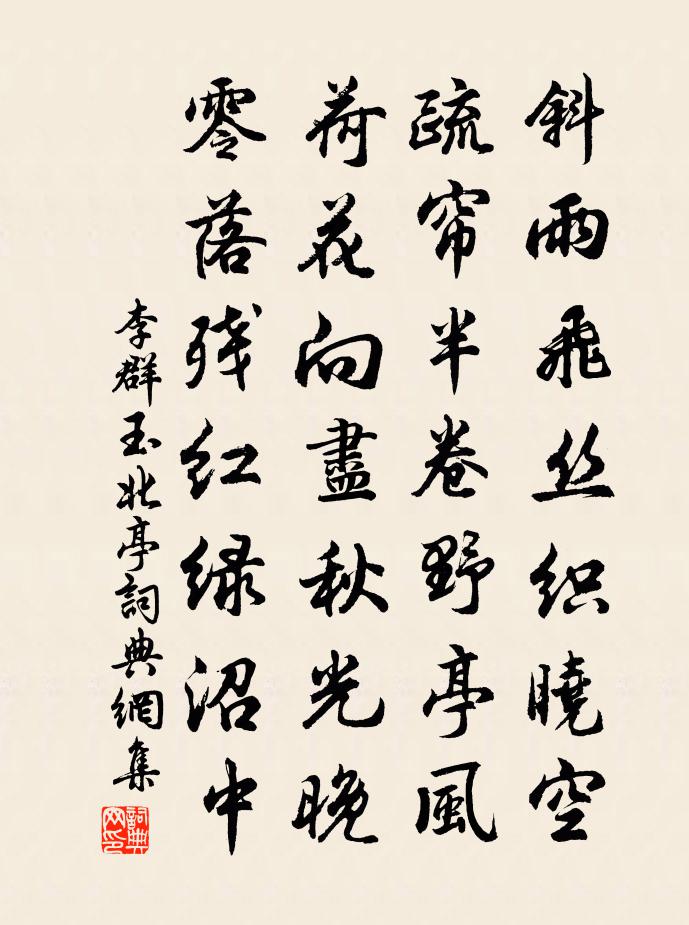 斜雨飛丝织曉空
疏帘半卷野亭風
荷花向盡秋光晚
零落残红绿沼中
李群玉北亭詞典網集
詞典網印